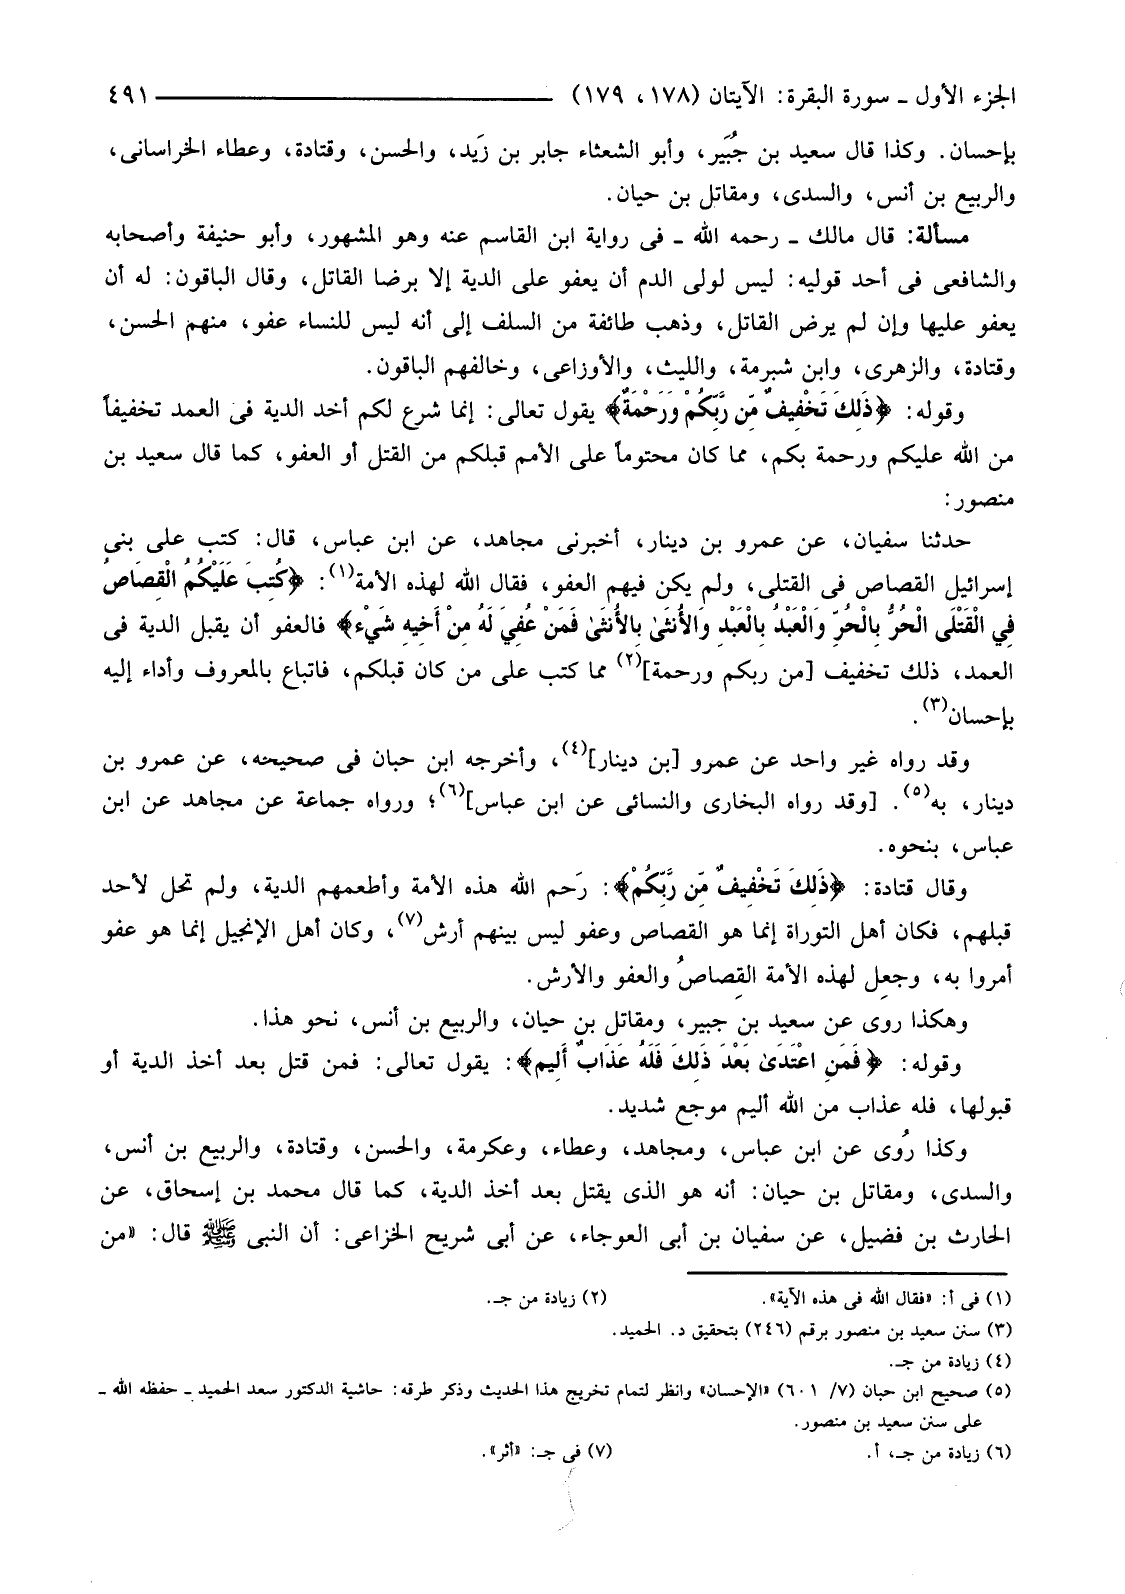 الجزء الأول ـ سورة البقرة: الآيتان (١٧٨، ١٧٩) ٤٩١
بإحسان. وكذا قال سعيد بن جُبَير، وأبو الشعثاء جابر بن زَيد، والحسن، وقتادة، وعطاء الخراسانى،
والربيع بن أنس، والسدى، ومقاتل بن حيان.
مسألة: قال مالك ـ رحمه الله ـ فى رواية ابن القاسم عنه وهو المشهور، وأبو حنيفة وأصحابه
والشافعى فى أحد قوليه: ليس لولى الدم أن يعفو على الدية إلا برضا القاتل، وقال الباقون: له أن
يعفو عليها وإن لم يرض القاتل، وذهب طائفة من السلف إلى أنه ليس للنساء عفو، منهم الحسن،
وقتادة، والزهرى، وابن شبرمة، والليث، والأوزاعى، وخالفهم الباقون.
وقوله: ﴿ذَلِكَ تَخْفِيفٌ مِّن رَّبِّكُمْ وَرَحْمَةٌ﴾ يقول تعالى: إنما شرع لكم أخد الدية فى العمد تخفيفاً
من الله عليكم ورحمة بكم، مما كان محتوماً على الأمم قبلكم من القتل أو العفو، كما قال سعيد بن
منصور:
حدثنا سفيان، عن عمرو بن دينار، أخبرنى مجاهد، عن ابن عباس، قال: كتب على بنى
إسرائيل القصاص فى القتلى، ولم يكن فيهم العفو، فقال الله لهذه الأمة(١): ﴿كُتِبَ عَلَيْكُمُ الْقِصَاصُ
فِي الْقَتْلَى الْحُرُّ بِالْحُرِّ وَالْعَبْدُ بِالْعَبْدِ وَالأُنثَىٰ بِالأُنثَىٰ فَمَنْ عُفِيَ لَهُ مِنْ أَخِيهِ شَيْءٌ﴾ فالعفو أن يقبل الدية فى
العمد، ذلك تخفيف [من ربكم ورحمة](٢) مما كتب على من كان قبلكم، فاتباع بالمعروف وأداء إليه
بإحسان(٣).
وقد رواه غير واحد عن عمرو [بن دينار](٤)، وأخرجه ابن حبان فى صحيحه، عن عمرو بن
دينار، به(٥). [وقد رواه البخارى والنسائى عن ابن عباس](٦)؛ ورواه جماعة عن مجاهد عن ابن
عباس، بنحوه.
وقال قتادة: ﴿ذَلِكَ تَخْفِيفٌ مِّن رَّبِّكُمْ﴾: رَحم الله هذه الأمة وأطعمهم الدية، ولم تحل لأحد
قبلهم، فكان أهل التوراة إنما هو القصاص وعفو ليس بينهم أرش(٧)، وكان أهل الإنجيل إنما هو عفو
أمروا به، وجعل لهذه الأمة القصاصُ والعفو والأرش.
وهكذا روى عن سعيد بن جبير، ومقاتل بن حيان، والربيع بن أنس، نحو هذا.
وقوله: ﴿فَمَنِ اعْتَدَىٰ بَعْدَ ذَلِكَ فَلَهُ عَذَابٌ أَلِيم﴾: يقول تعالى: فمن قتل بعد أخذ الدية أو
قبولها، فله عذاب من الله أليم موجع شديد.
وكذا رُوى عن ابن عباس، ومجاهد، وعطاء، وعكرمة، والحسن، وقتادة، والربيع بن أنس،
والسدى، ومقاتل بن حيان: أنه هو الذى يقتل بعد أخذ الدية، كما قال محمد بن إسحاق، عن
الحارث بن فضيل، عن سفيان بن أبى العوجاء، عن أبى شريح الخزاعى: أن النبى ﷺ قال: «من
(١) فى أ: «فقال الله فى هذه الآية». (٢) زيادة من جـ.
(٣) سنن سعيد بن منصور برقم (٢٤٦) بتحقيق د. الحميد.
(٤) زيادة من جـ.
(٥) صحيح ابن حبان (٧/ ٦٠١) «الإحسان» وانظر لتمام تخريج هذا الحديث وذكر طرقه: حاشية الدكتور سعد الحميد ـ حفظه الله ـ
على سنن سعيد بن منصور.
(٦) زيادة من جـ، أ. (٧) فى جـ: «أثر».